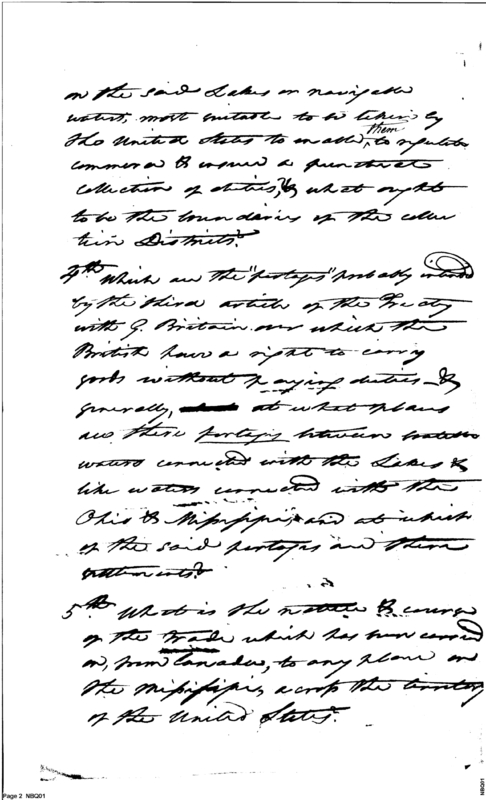 on the said Lakes or navigable
waters, most suitable to be taken by
the United States to enable, them to regulate
commerce & insure a punctual
collection of duties, & what ought
to be the boundaries of the collec
tion Districts?
4th Which are the "portages" probably intended
by the third article of the Treaty
with G. Britain over which the
British have a right to carry
goods without paying duties — &
generally, at what places
are there portages between
waters connected with the Lakes &
like waters connected with the
Ohio & Missisippi, and at which
of the said portages are there
settlements?
5th What is the nature & course
of the trade which has been carried
on, from Canada, to any place on
the Missisippi, across the territory
of the United States?
Page 2 NBQ01
NBQ01